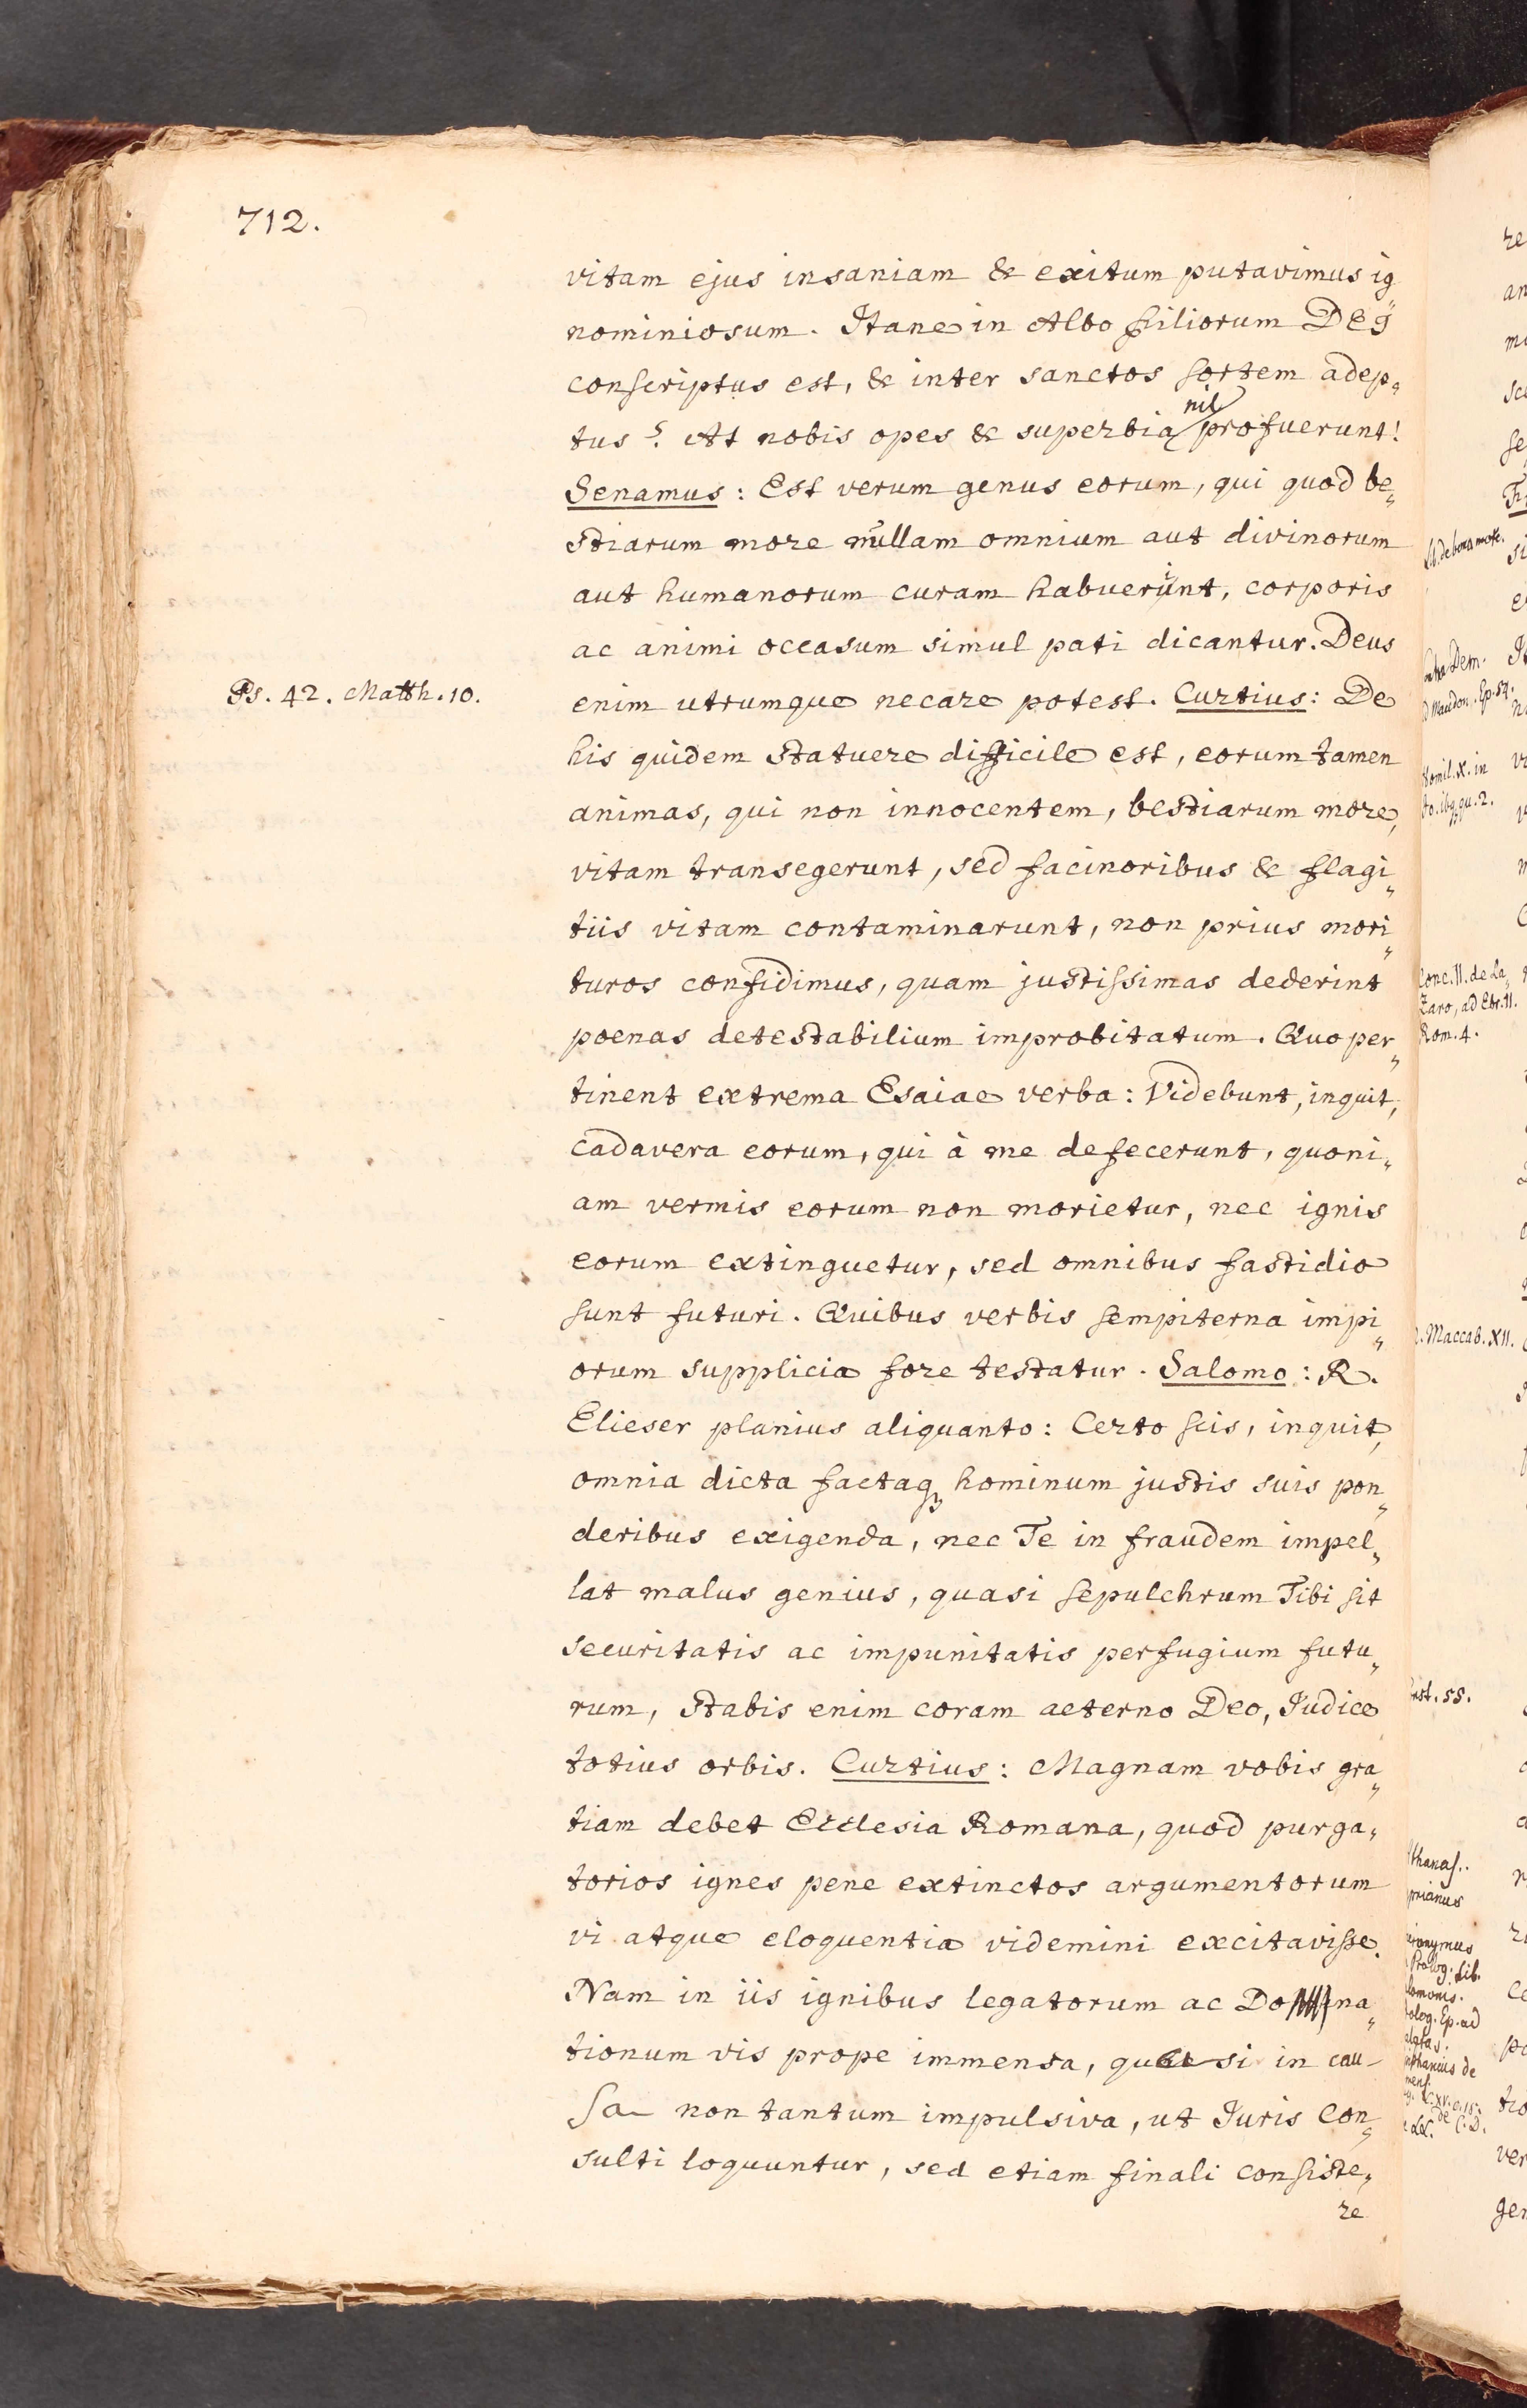 712.
vitam ejus insaniam & exitum putavimus ig„
nominiosum. Itane in Albo filiorum DEI
conscriptus est, & inter sanctos sortem adep„
tus? At nobis opes & superbia nil profuerunt!
Senamus: Est verum genus eorum, qui quod be„
stiarum more nullam omnium aut divinorum
aut humanorum curam habuerint, corporis
ac animi occasum simul pati dicantur. Deus
Ps. 42. Matth. 10.
enim utrumque necare potest. Curtius: De
his quidem statuere difficile est, eorum tamen
animas, qui non innocentem, bestiarum more,
vitam transegerunt, sed facinoribus & flagi„
tiis vitam contaminarunt, non prius mori„
turos confidimus, quam justissimas dederint
poenas detestabilium improbitatum. Quo per„
tinent extrema Esaiae verba: Videbunt, inquit,
cadavera eorum, qui à me defecerunt, quoni„
am vermis eorum non morietur, nec ignis
eorum extinguetur, sed omnibus fastidio
sunt futuri. Quibus verbis sempiterna impi„
orum supplicia fore testatur. Salomo: R.
Elieser planius aliquanto: Certo scis, inquit,
omnia dicta factaq₃ hominum justis suis pon„
deribus exigenda, nec Te in fraudem impel„
lat malus genius, quasi sepulchrum Tibi sit
securitatis ac impunitatis perfugium futu„
rum, stabis enim coram aeterno Deo, Iudice
totius orbis. Curtius: Magnam vobis gra„
tiam debet Ecclesia Romana, quod purga„
torios ignes pene extinctos argumentorum
vi atque eloquentia videmini excitavisse.
Nam in iis ignibus legatorum ac Dona„
tionum vis prope immensa, quasi in cau-
sa non tantum impulsiva, ut Iuris Con„
sulti loquuntur, sed etiam finali consiste„
re
Lib. de bona morte.
Ep. 54.
Homil. X. in
qu. 2.
Conc. II. de La„
zaro, ad Ebr. 11.
Rom. 4.
2. Maccab. XII.